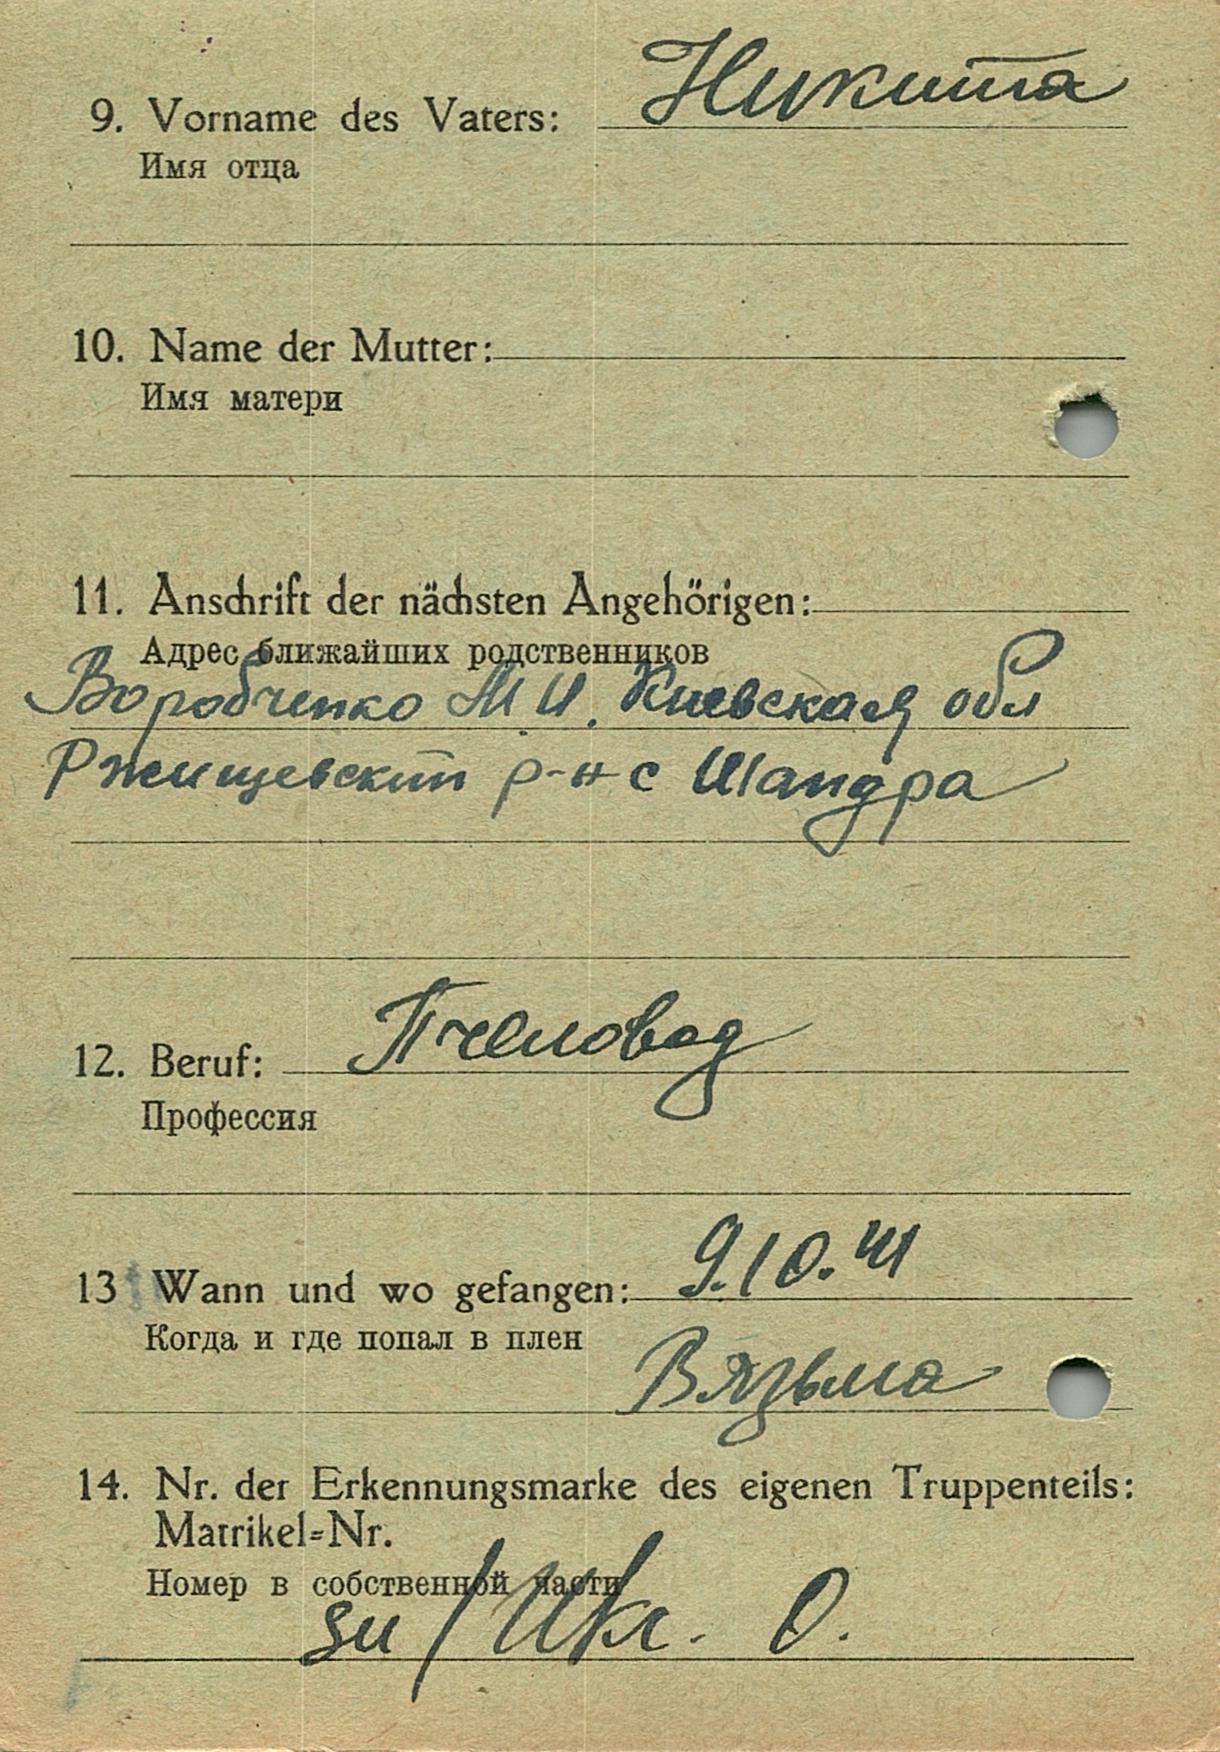 9. Vorname des Vaters: Никита
Имя отца
10. Name der Mutter:
Имя матери
11. Anschrift der nächsten Angehörigen:
Адрес ближайших родственников
Воробченко М И. Киевская обл
Ржищевский р-н с Шандра
12. Beruf: Пчеловод
Профессия
13 Wann und wo gefangen: 9.10.41
Когда и где попал в плен
Вязьма
14. Nr. der Erkennungsmarke des eigenen Truppenteils:
Matrikel=Nr.
Номер в собственной части
su / Ukr. O.